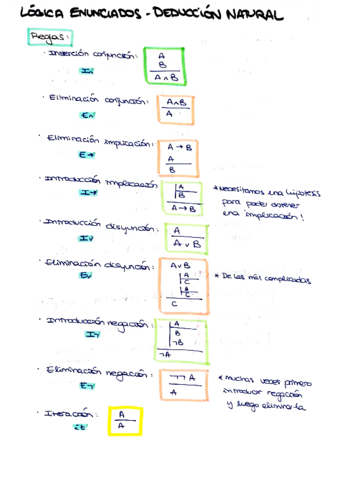 LÓGICA ENUNCIADOS - DEDUCCIÓN NATURAL
Reglas:
· Inserción conjunción:
I∧
A
B
A∧B
· Eliminación conjunción:
E∧
A∧B
A
· Eliminación implicación:
E→
A → B
A
B
· Introducción implicación
I→
A
B
A→B
* Necesitamos una hipotesis
para poder obtener
una implicación!
· Introducción disyunción:
I∨
A
A∨B
· Eliminación disyunción:
E∨
A∨B
A
C
B
C
C
* De las más complicadas
· Introducción negación:
I¬
A
B
¬B
¬A
· Eliminación negación:
E¬
¬¬A
A
* muchas veces primero
introducir negación
y luego eliminarla
· Iteración:
it
A
A